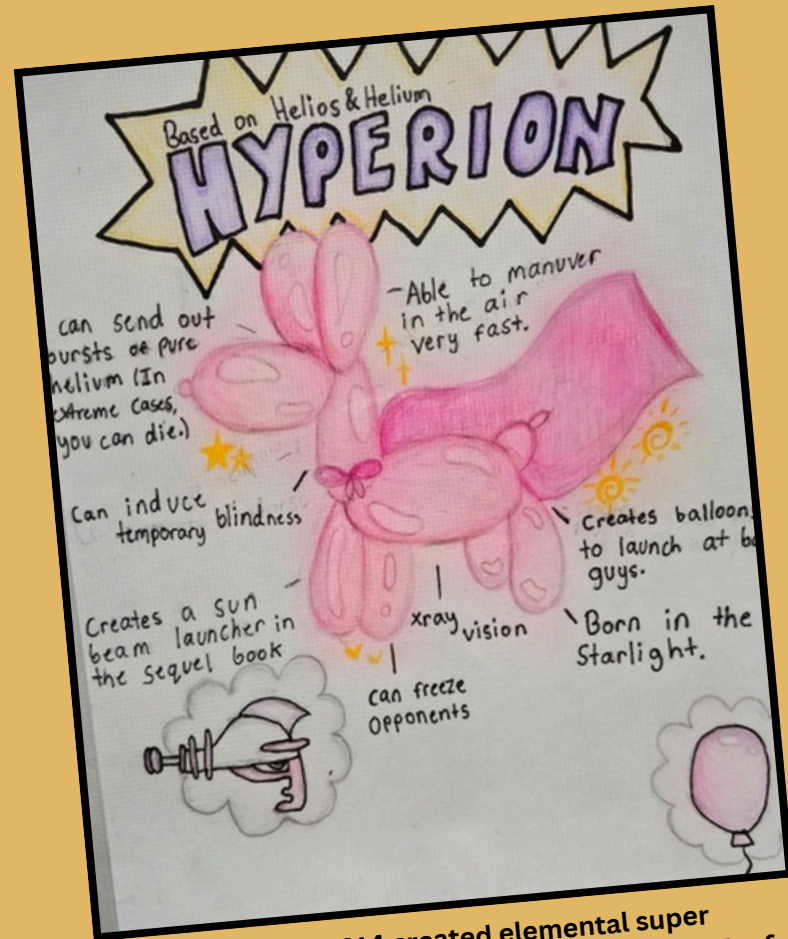 Based on Helios & Helium
HYPERION
can send out
bursts of pure
helium (In
extreme cases,
you can die.)
-Able to manuver
in the air
very fast.
Can induce
temporary blindness
Creates balloon
to launch at
guys.
Creates a sun
beam launcher in
the sequel book
xray vision
Born in the
Starlight.
can freeze
opponents
created elemental super